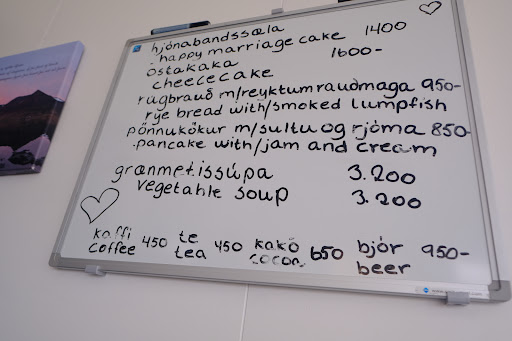 hjónabandssæla
happy marriage cake 1400
ostakaka 1600-
cheececake
rúgbrauð m/reyktum rauðmaga 950-
rye bread with/smoked lumpfish
pönnukökur m/sultu og rjóma 850-
pancake with/jam and cream
grænmetissúpa 3.200
vegetable soup 3.200
kaffi 450 te 450 kakó 650 bjór 950-
coffee tea cocoa beer